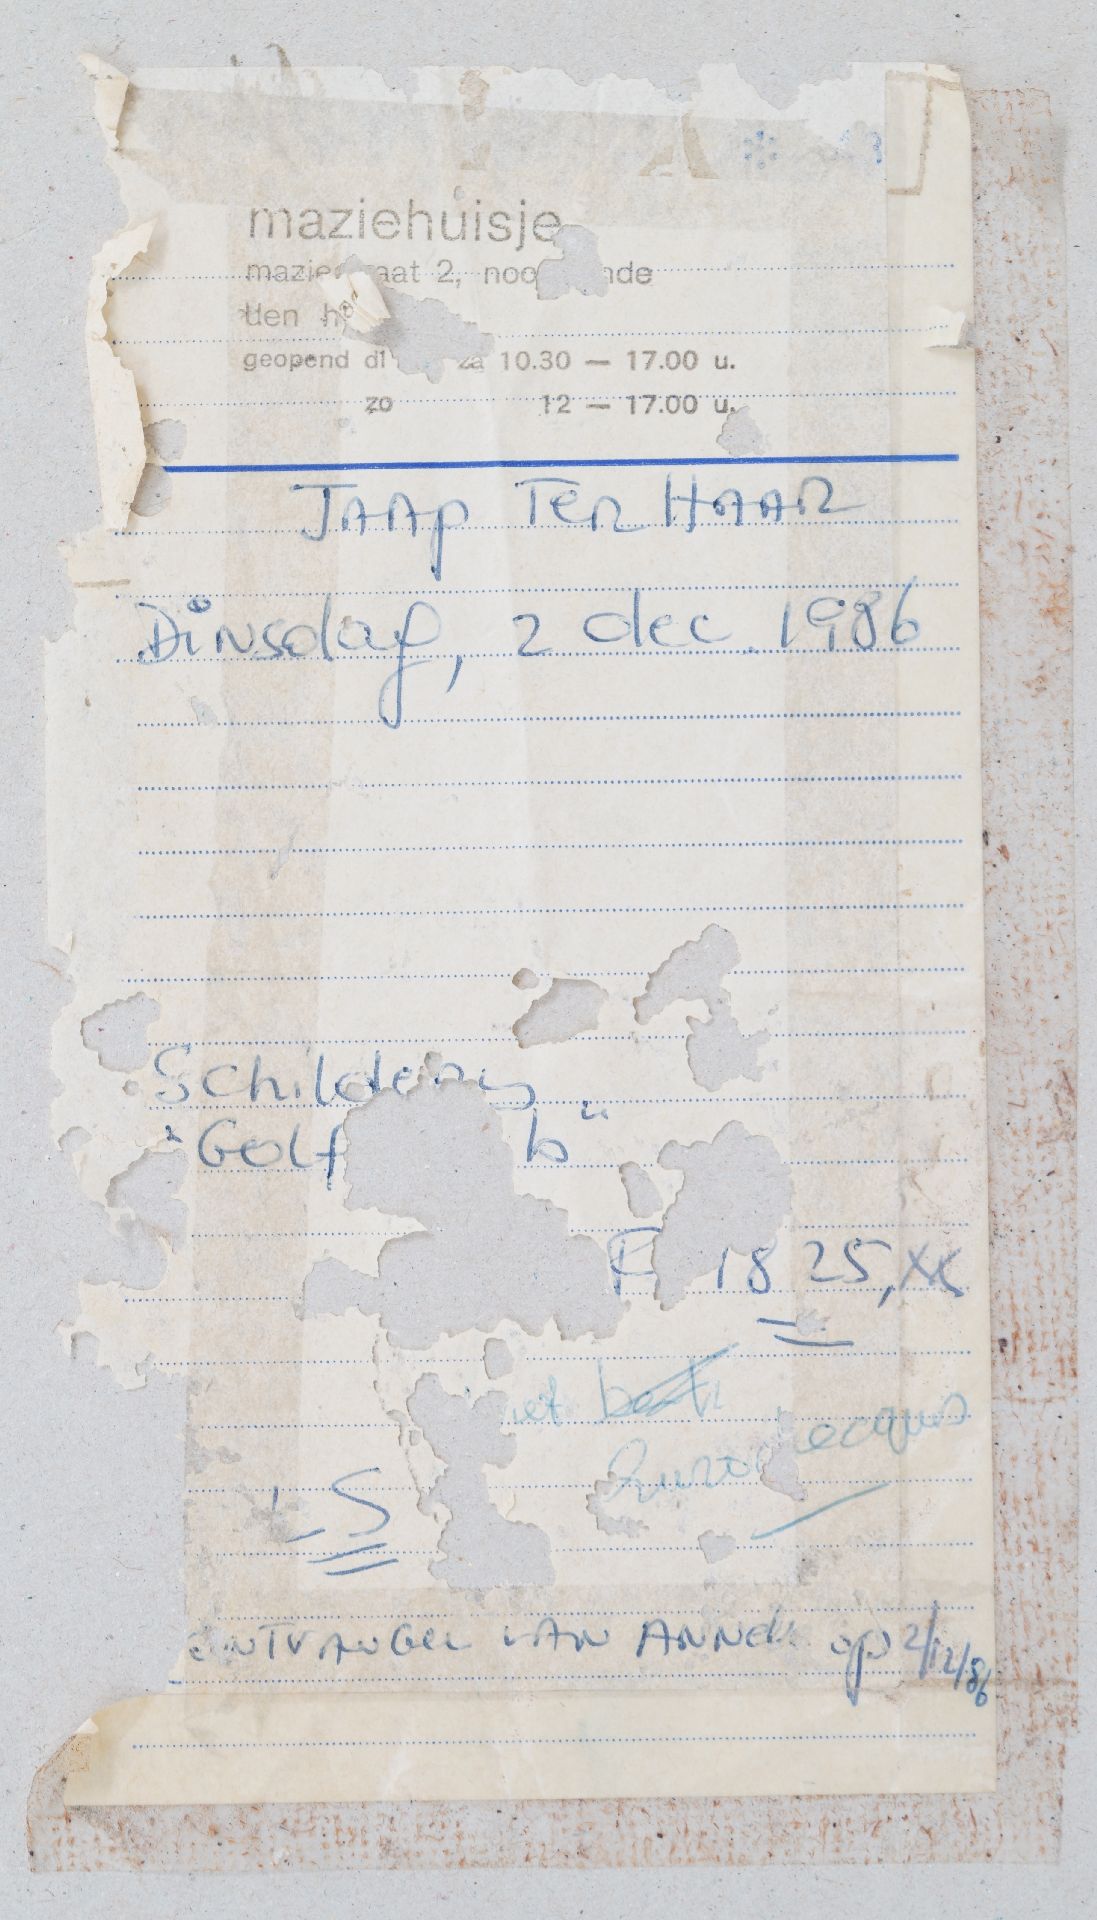 maziehuisje
2,
geopend za 10.30 — 17.00 u.
zo 12 — 17.00 u.
JAAP TER HAAR
Dinsdag, 2 dec. 1986
Schildery
"Golf b"
Fl 1825,xx
Euro
ONTVANGEN VAN ANNEK op 2/12/86